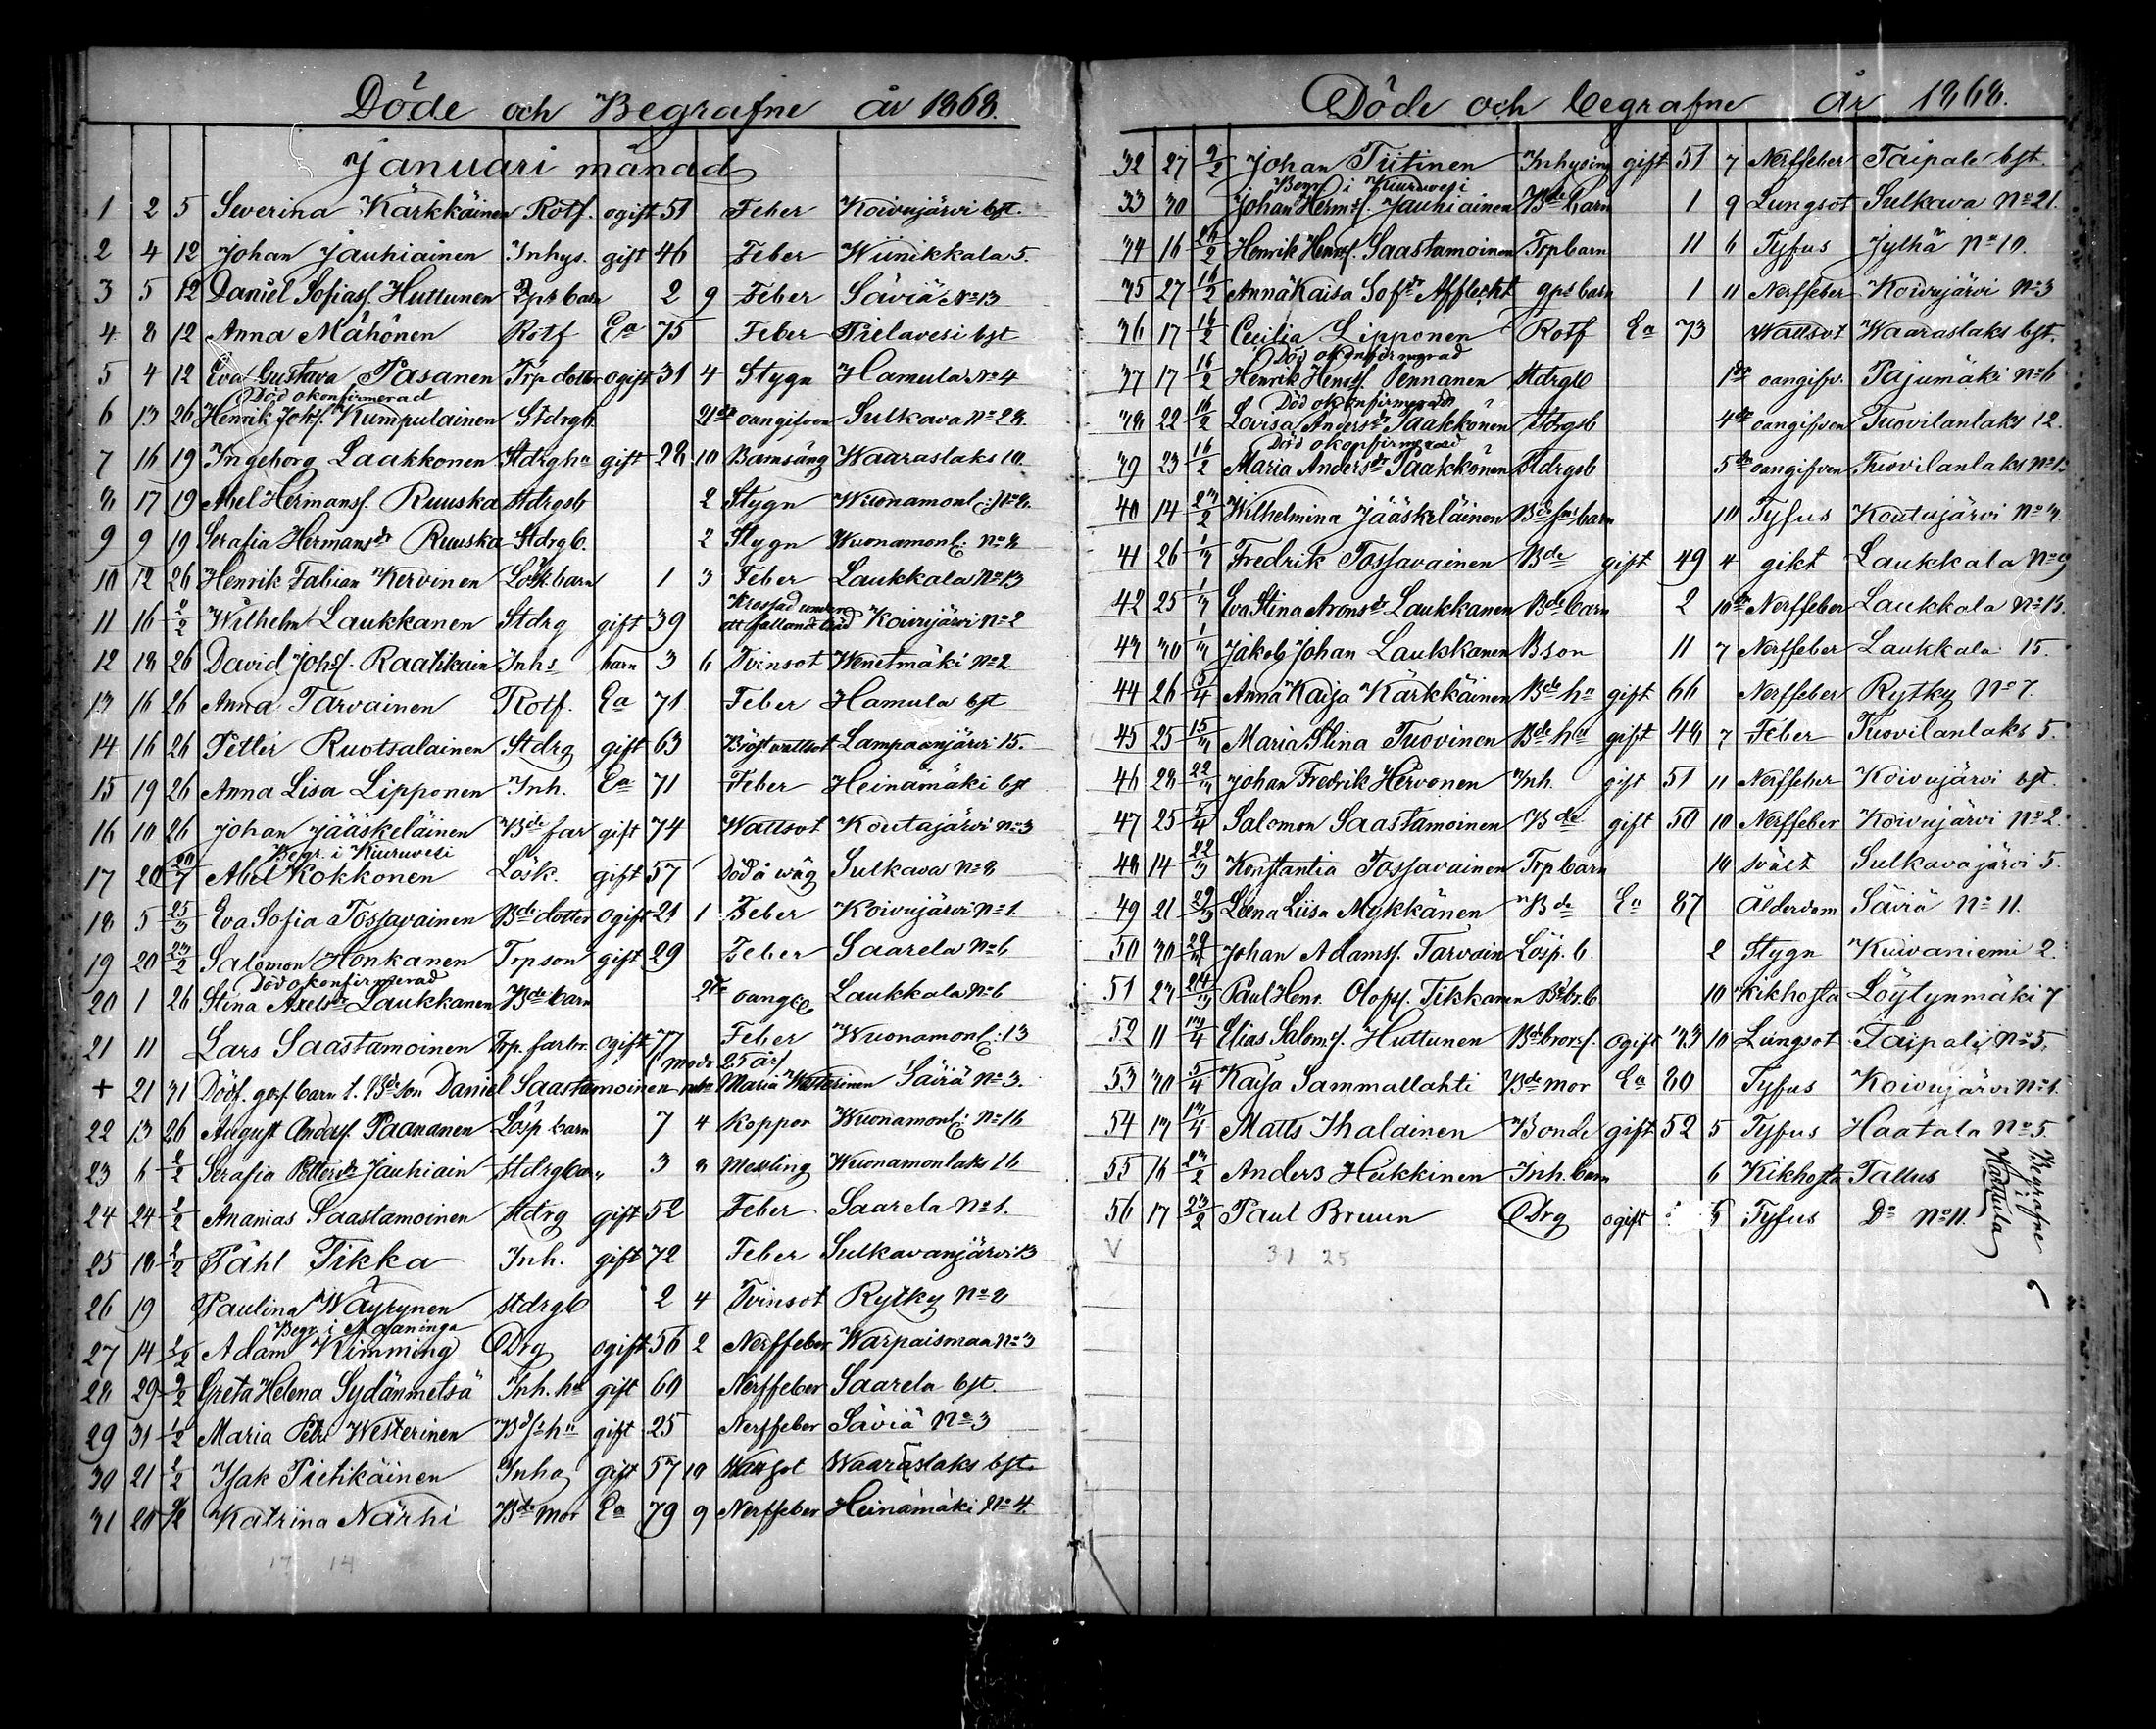 Döde och Begrafne år 1868.
Januari månad
1 2 5 Severina Kärkkäinen Rotf. ogift 51 Feber Koivujärvi bst.
2 4 12 Johan Jauhiainen Inhys. gift 46 Feber Wiinikkala 5.
3 5 12 Daniel Sofiass. Huttunen barn 2 9 Feber Säviä No 13
4 8 12 Anna Mähönen Rotf Ea 75 Feber Pielavesi bst
5 4 12 Eva Gustava Pasanen Trp dotter ogift 31 4 Stygn Hamula No 4
Död okonfirmerad
6 13 26 Henrik Johs. Kumpulainen Stdrgb. 21 oangifven Sulkava No 28.
7 16 19 Ingeborg Laakkonen Stdrgha gift 28 10 Barnsäng Waaraslaks 10.
8 17 19 Abel Hermanss. Ruuska Stdrgsb 2 Stygn Wuonamonl: No 8.
9 9 19 Serafia Hermansdr Ruuska Stdrgb. 2 Stygn Wuonamonl: No 8
10 12 26 Henrik Fabian Kervinen Lösk barn 1 3 Feber Laukkala No 13
11 16 2/2 Wilhelm Laukkanen Stdrg gift 39 Krossad under ett fallande träd Koivujärvi No 2
12 18 26 David Johss. Raatikain Inhs barn 3 6 Tvinsot Wenetmäki No 2
13 16 26 Anna Tarvainen Rotf. Ea 71 Feber Hamula bst
14 16 26 Petter Ruotsalainen Stdrg gift 63 Bröstvattsot Lampaanjärvi 15.
15 19 26 Anna Lisa Lipponen Inh. Ea 71 Feber Heinämäki bst
16 10 26 Johan Jääskeläinen Bde far gift 74 Wattsot Koutajärvi No 3
Begr. i Kiuruvesi
17 20 Abel Kokkonen Lösk. gift 57 Död å väg Sulkava No 8
18 5 25/3 Eva Sofia Tossavainen Bde dotter ogift 21 1 Feber Koivujärvi No 1.
19 20 23/2 Salomon Honkanen Trpson gift 29 Feber Saarela No 6
Död okonfirmerad
20 1 26 Stina Axelsdr Laukkanen Bde barn 2 oang Laukkala No 6
21 11 Lars Saastamoinen Trp. farbr. ogift 77 Feber Wuonamonl: 13
+ 21 31 Dödf. gos. barn t. Bde son Daniel Saastamoinen (moder 25 år) Maria Westerinen Säviä No 3.
22 13 26 August Anderss. Paananen Lösp barn 7 4 Koppor Wuonamonl: No 16
23 6 2/2 Serafia Pettersdr Jauhiain Stdrgbarn 3 8 Messling Wuonamonlaks 16
24 24 2/2 Ananias Saastamoinen Stdrg gift 52 Feber Saarela No 1.
25 18 2/2 Påhl Tikka Inh. gift 72 Feber Sulkavanjärvi 13
26 19 Paulina Wäyrynen Stdrgb 2 4 Tvinsot Rytky No 8
Begr. i Maaninga
27 14 2/2 Adam Kimming Drg ogift 56 2 Nerffeber Warpaismaa No 3
28 29 9/2 Greta Helena Sydänmetsä Inh. ha gift 60 Nerffeber Saarela bst.
29 31 1/2 Maria Petri Westerinen gift 25 Nerffeber Säviä No 3
30 21 2/2 Isak Pietikäinen Inh gift 57 10 Wattsot Waaraslaks bst.
31 20 9/2 Katriina Närhi Bde mor Ea 79 9 Nerffeber Heinämäki No 4.
17 14
Döde och begrafne år 1868.
32 27 9/2 Johan Tiitinen Inhysing gift 51 7 Nerffeber Taipale bst.
Begr. i Kiuruvesi
33 30 Johan Hermss. Jauhiainen Bde barn 1 9 Lungsot Sulkava No 21.
34 16 16/2 Henrik Henrss. Saastamoinen Trpbarn 11 6 Tyfus Jylhä No 10.
35 27 16/2 Anna Kaisa Sofdr Affleckt barn 1 11 Nerffeber Koivujärvi No 3
36 17 16/2 Cecilia Lipponen Rotf Ea 73 Wattsot Waaraslaks bst.
Död okonfirmerad
37 17 16/2 Henrik Henrss. Pennanen Stdrgb 1 oangifv. Pajumäki No 6
Död okonfirmerad
38 22 16/2 Lovisa Andersdr Paakkonen Stdrgsb 4 oangifven Tuovilanlaks 12.
Död okonfirmerad
39 23 16/2 Maria Andersdr Paakkonen Stdrgsb 5 oangifven Tuovilanlaks No 1
40 14 23/2 Wilhelmina Jääskeläinen barn 10 Tyfus Koutujärvi No 3.
41 26 1/3 Fredrik Tossavainen Bde gift 49 4 gikt Laukkala No 9
42 25 1/3 Eva Stina Aronsdr Laukkanen Bde barn 2 10 Nerffeber Laukkala No 15.
43 30 1/3 Jakob Johan Laukkanen Bson 11 7 Nerffeber Laukkala 15.
44 26 5/4 Anna Kaisa Kärkkäinen Bde ha gift 66 Nerffeber Rytky No 7.
45 25 15/3 Maria Stina Tuovinen Bde ha gift 48 7 Feber Tuovilanlaks 5.
46 28 22/3 Johan Fredrik Hervonen Inh. gift 51 11 Nerffeber Koivujärvi bst.
47 25 5/4 Salomon Saastamoinen Bde gift 50 10 Nerffeber Koivujärvi No 2.
48 14 22/3 Konstantia Tossavainen Trp barn 10 svält Sulkavajärvi 5.
49 21 29/3 Leena Liisa Mykkänen Bde Ea 87 Ålderdom Säviä No 11.
50 30 Johan Adamss. Tarvain Lösp. b. 2 Stygn Kuivaniemi 2.
51 23 Paul Henr. Olofss. Tikkanen 10 Kikhosta Löytynmäki 7
52 11 13/4 Elias Salomss. Huttunen Bde brors. ogift 33 10 Lungsot Taipale No 5.
53 30 5/4 Kaisa Sammallahti Bde mor Ea 80 Tyfus Koivujärvi No 1.
54 13 13/4 Matts Ihalainen Bonde gift 52 5 Tyfus Haatala No 5.
55 16 23/2 Anders Heikkinen Inh. barn 6 Kikhosta Tallus
56 17 23/2 Paul Bruun Drg ogift 5 Tyfus Do No 11.
Begrafne i Karttula
V 31 25